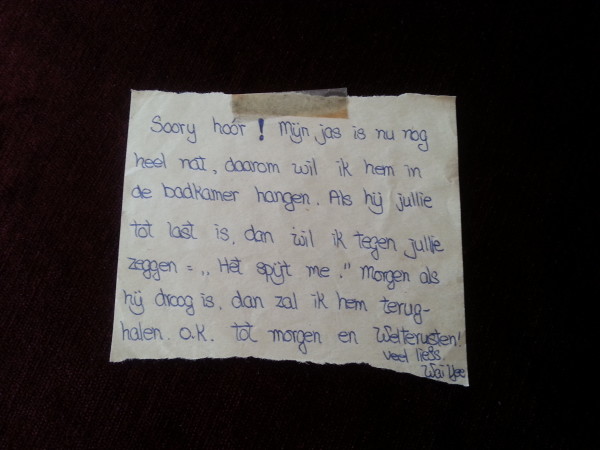 Soory hóór! Mijn jas is nu nog
heel nat, daarom wil ik hem in
de badkamer hangen. Als hij jullie
tot last is, dan wil ik tegen jullie
zeggen = „Het spijt me." Morgen als
hij droog is, dan zal ik hem terug-
halen. O.K. tot morgen en Welterusten!
veel liefs.
Wai Yee